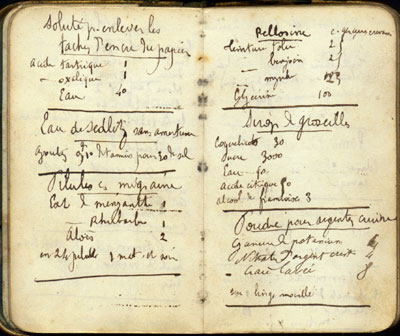 Soluté pr enlever les
taches d'encre du papier
acide tartrique 1
— oxalique 1
Eau 40
Eau de Sedlitz sans amertume
Ajoutez 0g10 de tannin pour 30 de sel
Pilules c. migraine
Ext. de ményanthe 1
— Rhubarbe 1
Aloès 2
en 24 pilules 1 mat. et soir
Pellorine c. gerçures crevasses
teinture tolu 2
— benjoin 2
— myrrhe
Glycérine 100
Sirop de groseilles
Coquelicots 30
Sucre 3000
Eau
acide citrique
alcool de framboises 3
Poudre pour argenter cuivre
de potassium
Nitrate d'argent crist 4
Craie lavée 8
linge mouillé